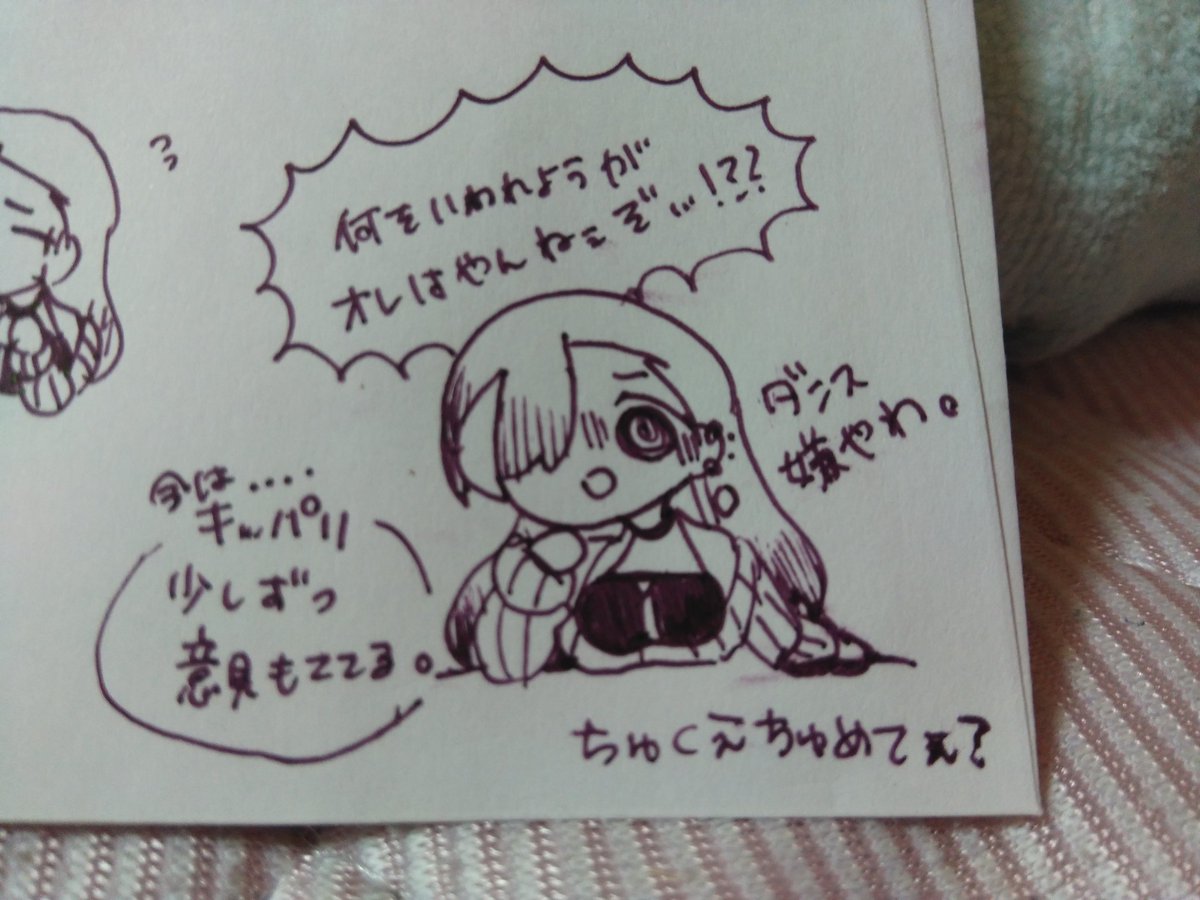 何をいわれようが
オレはやんねェぞ…!??
ダンス
嫌やわ。
今は....
キッパリ
少しずつ
意見もててる。
ちゅくえちゅめてぇ?